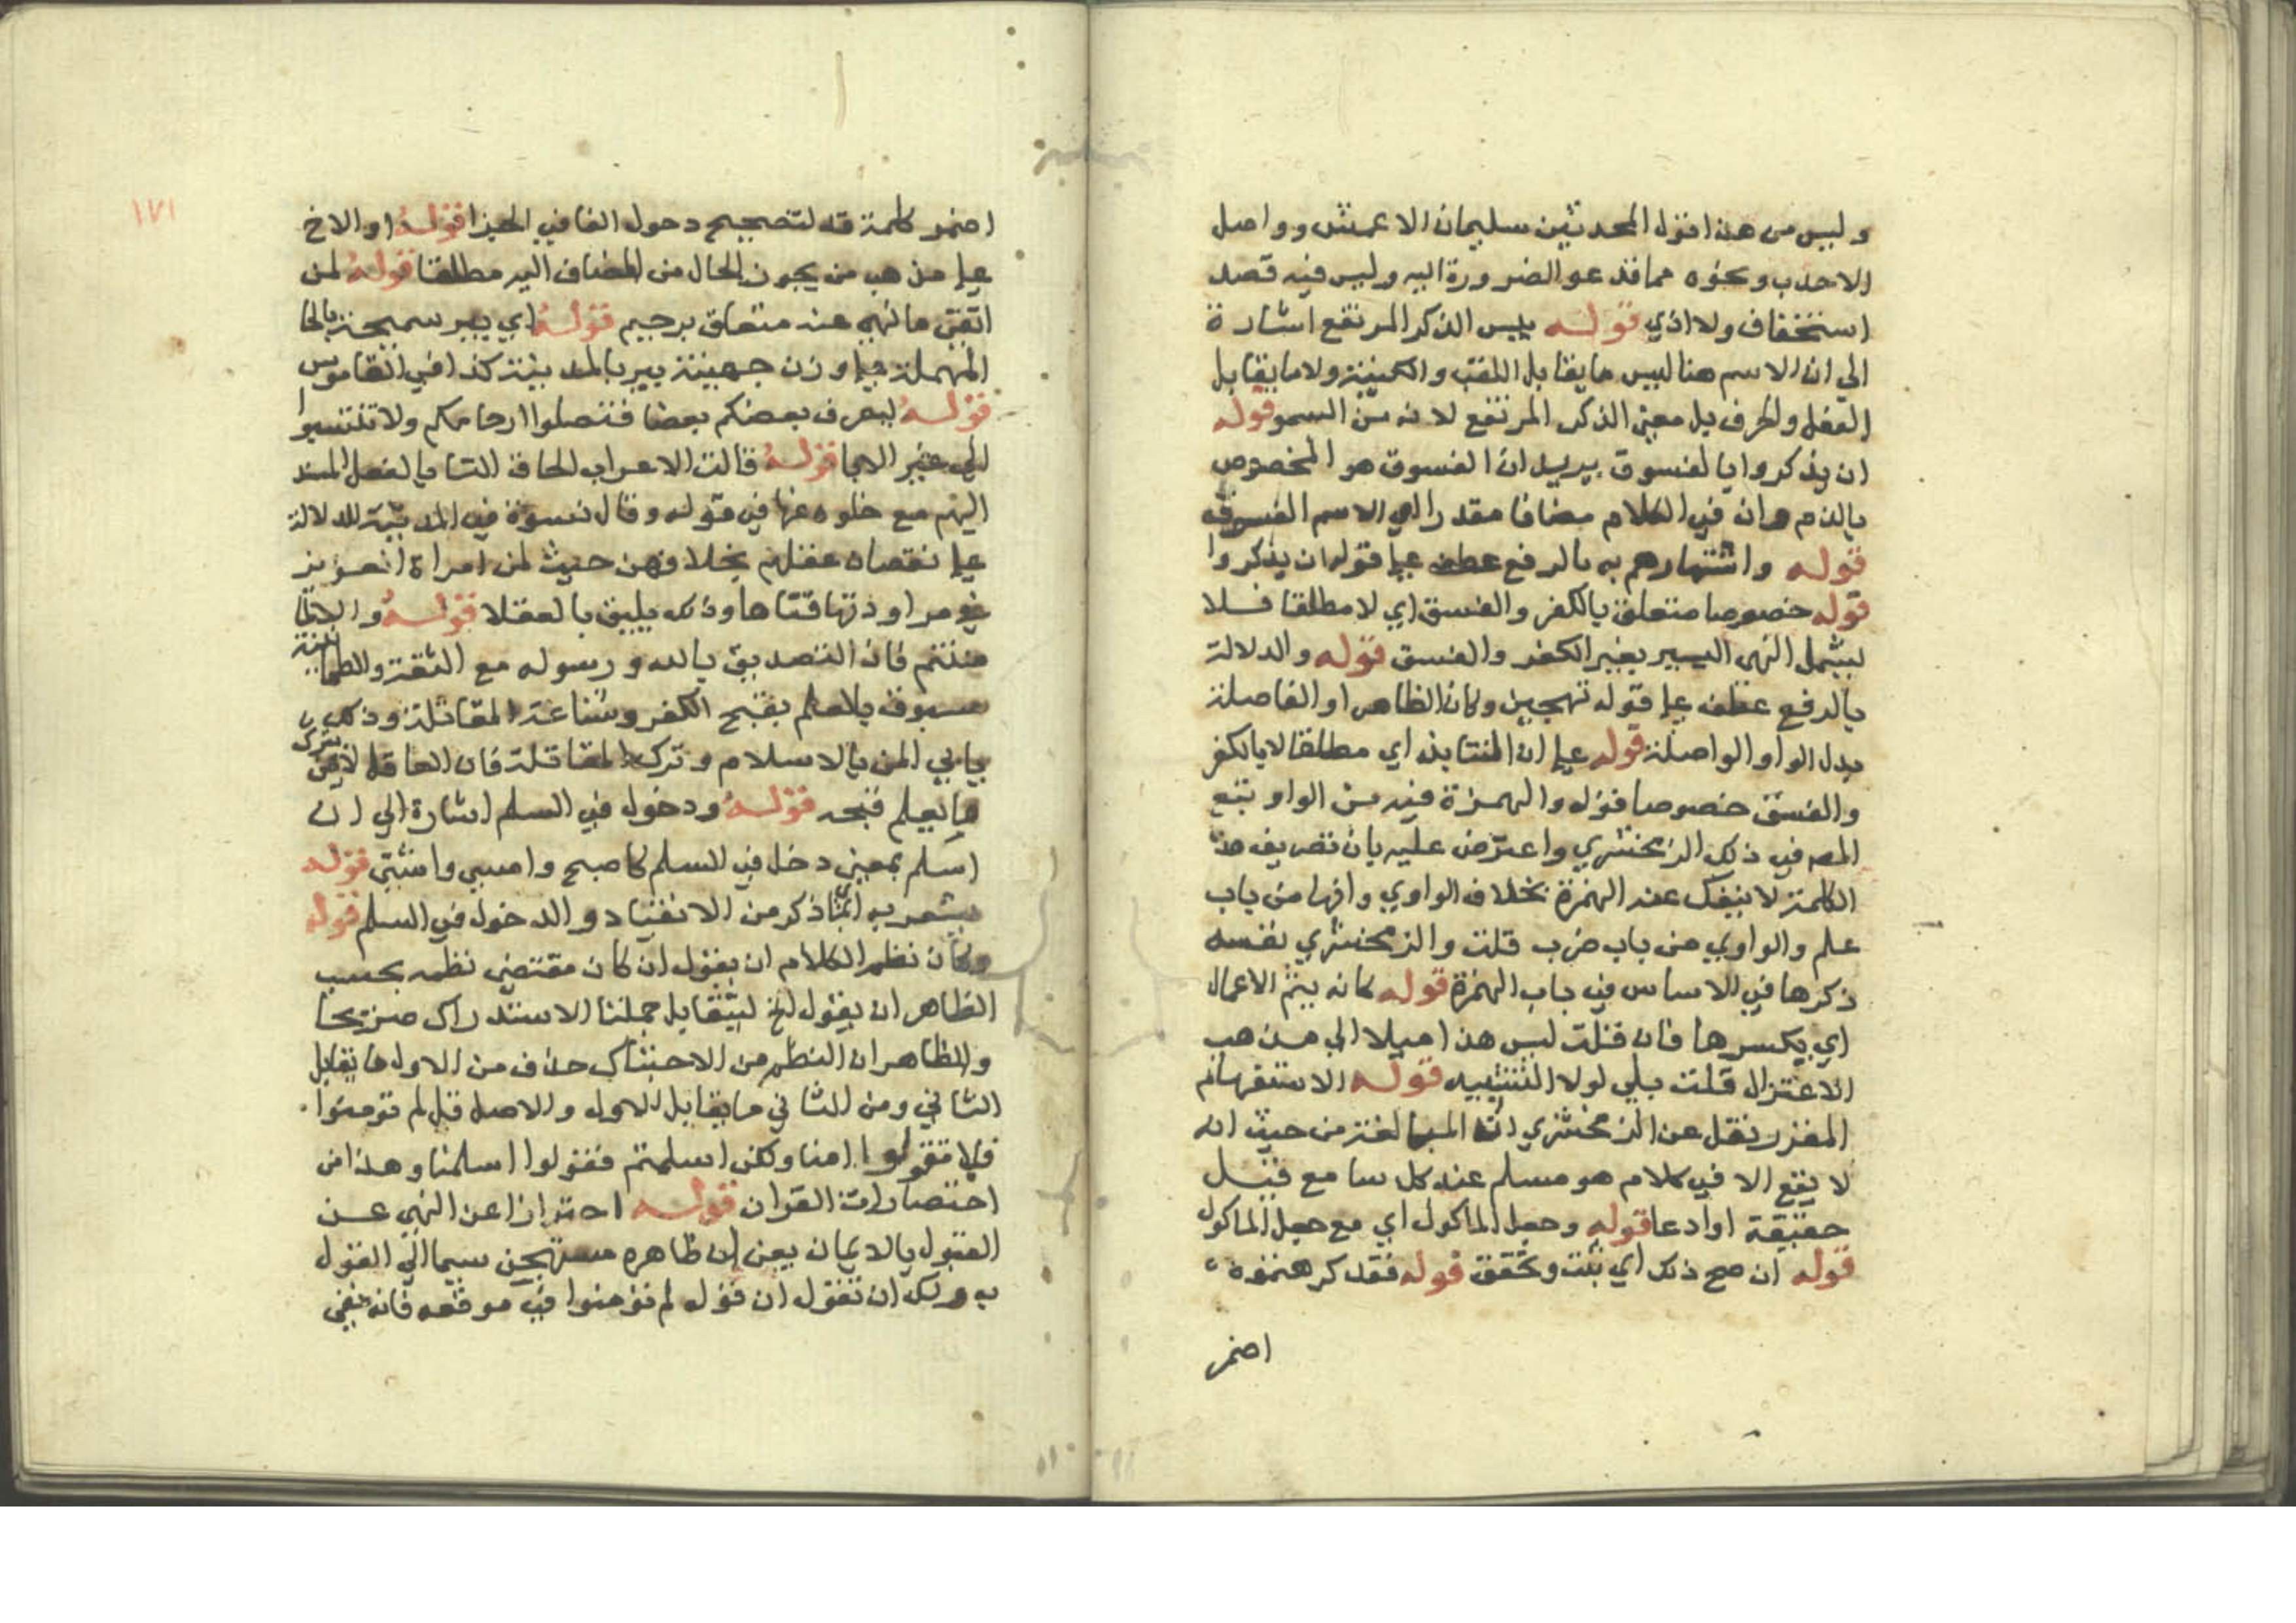 وليس من هذا قول المحدثين سليمان الاعمش وواصل
الاحدب ونحوه مما قد عو الضرورة اليه وليس فيه قصد
استخفاف ولا اذي قوله بيس الذكر المرتفع اشارة
الي ان الاسم هنا ليس ما يقابل اللقب والكنية ولا ما يقابل
الفعل والحرف بل معني الذكر المرتفع لانه من السمو قوله
ان يذكروا بالفسوق يريد ان الفسوق هو المخصوص
بالذم وان في الكلام مضافا مقدرا الي الاسم الفسوق
قوله واشتهارهم به بالرفع عطف علي قوله ان يذكروا
قوله خصوصا متعلق بالكفر والفسق اي لا مطلقا فلا
يشمل النهي اليسير بغير الكفر والفسق قوله والدلالة
بالرفع عطف علي قوله تهجين وكان الظاهر او الفاصلة
بدل الواو الواصلة قوله علي ان التنابذ اي مطلقا لا بالكفر
والفسق خصوصا قوله والهمزة فيه من الواو تبع
المصـ في ذلك الزمخشري واعترض عليه بان تصريف هذه
الكلمة لا ينفك عنه الهمزة بخلاف الواوي وانها من باب
علم والواوي من باب ضرب قلت والزمخشري نفسه
ذكرها في الاساس في باب الهمزة قوله كانه يثم الاعمال
اي يكسرها فان قلت ليس هذا ميلا الي مذهب
الاعتزال قلت بلي لولا التشبيه قوله الاستفهام
المقرر نقل عن الزمخشري انه المبالغة من حيث انه
لا يقع الا في كلام هو مسلم عند كل سامع قبل
حقيقة او ادعا قوله وجعل الماكول اي مع جعل الماكول
قوله ان صح ذلك اي ثبت وتحقق قوله فقد كرهتموه
اضمر
١٧١
اضمر كلمة قد لتصحيح دخول الفا في الجزا قوله او الاخ
علي مذهب من يجوز الحال من المضاف اليه مطلقا قوله لمن
اتقي ما نهي عنه متعلق برحيم قوله اي بير سميحة بالحا
المهملة علي وزن جهينة بير بالمدينة كذا في القاموس
قوله ليعرف بعضكم بعضا فتصلوا ارحامكم ولا تنتسبوا
الي غير الابا قوله قالت الاعراب الحاق التا بالفعل المسند
اليهم مع خلوه عنها في قوله وقال نسوة في المدينة للدلالة
علي نقصان عقلهم بخلافهن حيث لمن امراة العزيز
في مراودتها فتاها وذلك يليق بالعقلا قوله والا لما
مننتم فان التصديق بالله ورسوله مع الثقة والطمانينة
مسبوق بالعلم بقبح الكفر وشناعة المقاتلة وذلك
يابي المن بالاسلام وترك المقاتلة فان العاقل لا يمن بترك
ما يعلم قبحه قوله ودخول في السلم اشارة الي ان
اسلم بمعني دخل في السلم كاصبح وامسي واشتي قوله
يشعر به اي بما ذكر من الانقياد والدخول في السلم قوله
وكان نظم الكلام ان يقول ان كان مقتضي نظمه بحسب
الظاهر ان يقول الخ ليتقابل جملتا الاستدراك صريحا
والظاهر ان النظم من الاحتباك حذف من الاول ما يقابل
الثاني ومن الثاني ما يقابل الاول والاصل قل لم تومنوا
فلا تقولوا امنا ولكن اسلمتم فقولوا اسلمنا وهذا من
اختصارات القران قوله احترازا عن النهي عن
القول بالايمان يعني ان ظاهره مستهجن سيما الي القول
به ولك ان تقول ان قوله لم تؤمنوا في موقعه فانه نفي